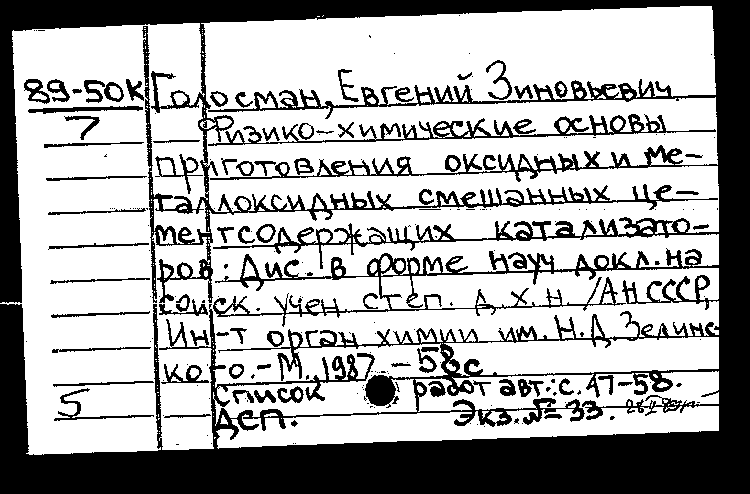 89-50К Голосман, Евгений Зиновьевич
7 Физико-химические основы
приготовления оксидных и ме-
таллоксидных смешанных це-
ментсодержащих катализато-
ров: Дис. в форме науч докл. на
соиск. учен. степ. д. х. н. /АН СССР,
Ин-т орган химии им. Н.Д. Зелинс-
кого.-М., 1987. - 58с.
5 Список работ авт.: с. 47-58.
ДСП. Экз. № 33.